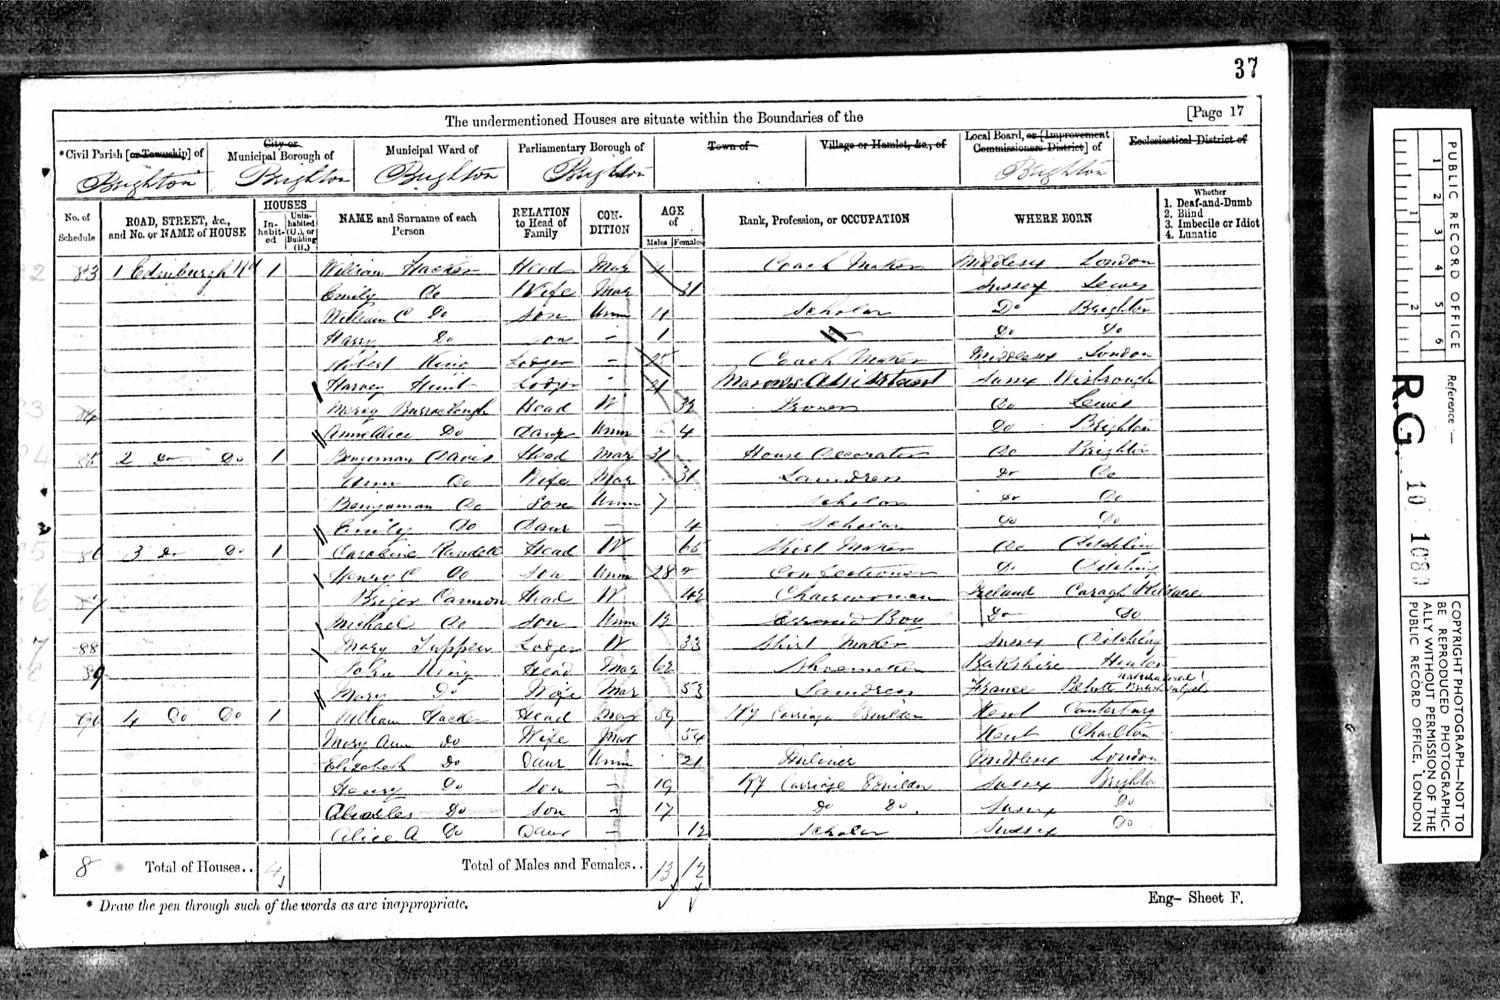 37
The undermentioned Houses are situate within the Boundaries of the [Page 17
*Civil Parish [or Township] of City or Municipal Borough of Municipal Ward of Parliamentary Borough of Town of Village or Hamlet, &c., of Local Board, or [Improvement Commissioners District] of Ecclesiastical District of
Brighton Brighton Brighton Brighton Brighton
No. of Schedule ROAD, STREET, &c., and No. or NAME of HOUSE HOUSES Inhabited Uninhabited (U.), or Building (B.) NAME and Surname of each Person RELATION to Head of Family CONDITION AGE of Males Females Rank, Profession, or OCCUPATION WHERE BORN Whether 1. Deaf-and-Dumb 2. Blind 3. Imbecile or Idiot 4. Lunatic
83 1 Edinburgh Rd 1 William Hacker Head Mar Coach Maker Middlesex London
Emily Do Wife Mar 31 Sussex Lewes
William C Do Son Unm 11 Scholar Do Brighton
Harry Do Son 1 Do Do
King Lodger 25 Coach Maker Middlesex London
Harvey Hunt Lodger 21 Masons Assistant Sussex
84 Head W Do Lewes
Do Daur Unm 4 Do Brighton
85 2 Do Do 1 Benjaman Davis Head Mar 31 House Decorator Do Brighton
Do Wife Mar 31 Laundress Do Do
Benjaman Do Son Unm 7 Scholar Do Do
Emily Do Daur 4 Scholar Do Do
86 3 Do Do 1 Caroline Head W Shirt Maker Do Ditchling
Henry C Do Son Unm 28 Confectioner Do Ditchling
87 Cannon Head W Charwoman Ireland Kildare
Michael Do Son Unm 12 Errand Boy Do Do
88 Mary Tupper Lodger W 33 Shirt Maker Sussex Ditchling
89 John King Head Mar 62 Shoemaker Berkshire
Mary Do Wife Mar 53 Laundress France
90 4 Do Do 1 William Hacker Head Mar 59 Ry Carriage Builder Kent Canterbury
Mary Ann Do Wife Mar 54 Kent Charlton
Elizabeth Do Daur Unm 21 Milliner Middlesex London
Henry Do Son 19 Ry Carriage Builder Sussex Brighton
Charles Do Son 17 Do Do Sussex Do
Alice A Do Daur 12 Scholar Sussex Do
8 Total of Houses.. 4 Total of Males and Females.. 13 12
* Draw the pen through such of the words as are inappropriate.
Eng- Sheet F.
PUBLIC RECORD OFFICE
1 2 3 4 5 6
1 2
Reference:-
R.G. 10 1089
COPYRIGHT PHOTOGRAPH—NOT TO BE REPRODUCED PHOTOGRAPHICALLY WITHOUT PERMISSION OF THE PUBLIC RECORD OFFICE, LONDON